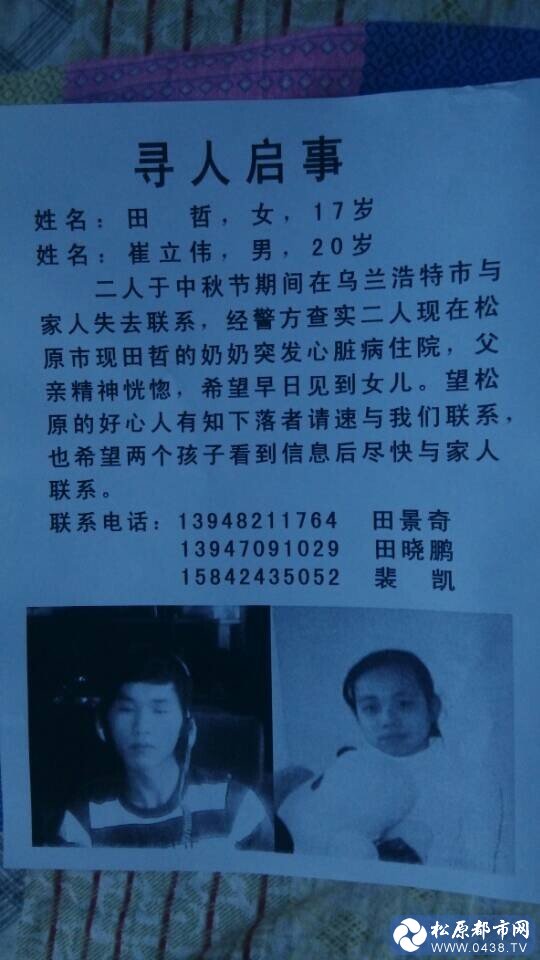 寻人启事
姓名：田　哲，女，17岁
姓名：崔立伟，男，20岁
二人于中秋节期间在乌兰浩特市与
家人失去联系，经警方查实二人现在松
原市现田哲的奶奶突发心脏病住院，父
亲精神恍惚，希望早日见到女儿。望松
原的好心人有知下落者请速与我们联系，
也希望两个孩子看到信息后尽快与家人
联系。
联系电话：13948211764　田景奇
13947091029　田晓鹏
15842435052　裴　凯
松原都市网
WWW.0438.TV